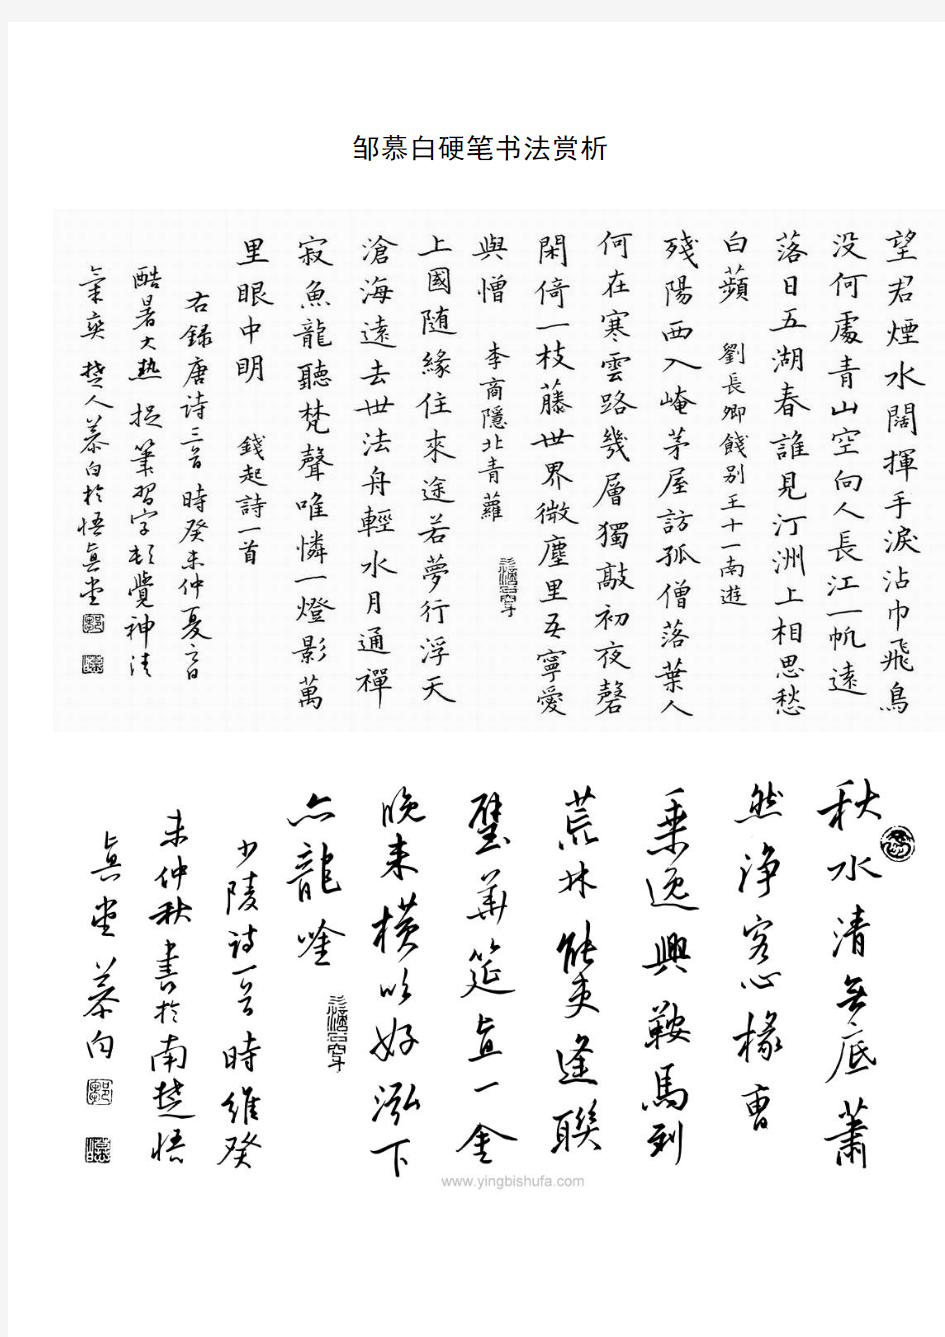 邹慕白硬笔书法赏析
望君煙水闊揮手淚沾巾飛鳥
没何處青山空向人長江一帆遠
落日五湖春誰見汀洲上相思愁
白蘋 劉長卿餞别王十一南遊
殘陽西入崦茅屋訪孤僧落葉人
何在寒雲路幾層獨敲初夜磬
閑倚一枝藤世界微塵里吾寧愛
與憎 李商隱北青蘿
上國随緣住來途若夢行浮天
滄海遠去世法舟輕水月通禪
寂魚龍聽梵聲唯憐一燈影萬
里眼中明 錢起詩一首
右録唐诗三首 時癸未仲夏
酷暑大熱 捉筆習字頓覺神清
氣爽 楚人慕白於悟真堂
秋水清無底蕭
然净客心掾曹
乘逸興鞍馬到
荒林能吏逢聯
璧華筵直一金
晚来横吹好泓下
亦龍唫
少陵诗一首 時維癸
未仲秋書於南楚悟
真堂 慕白
www.yingbishufa.com